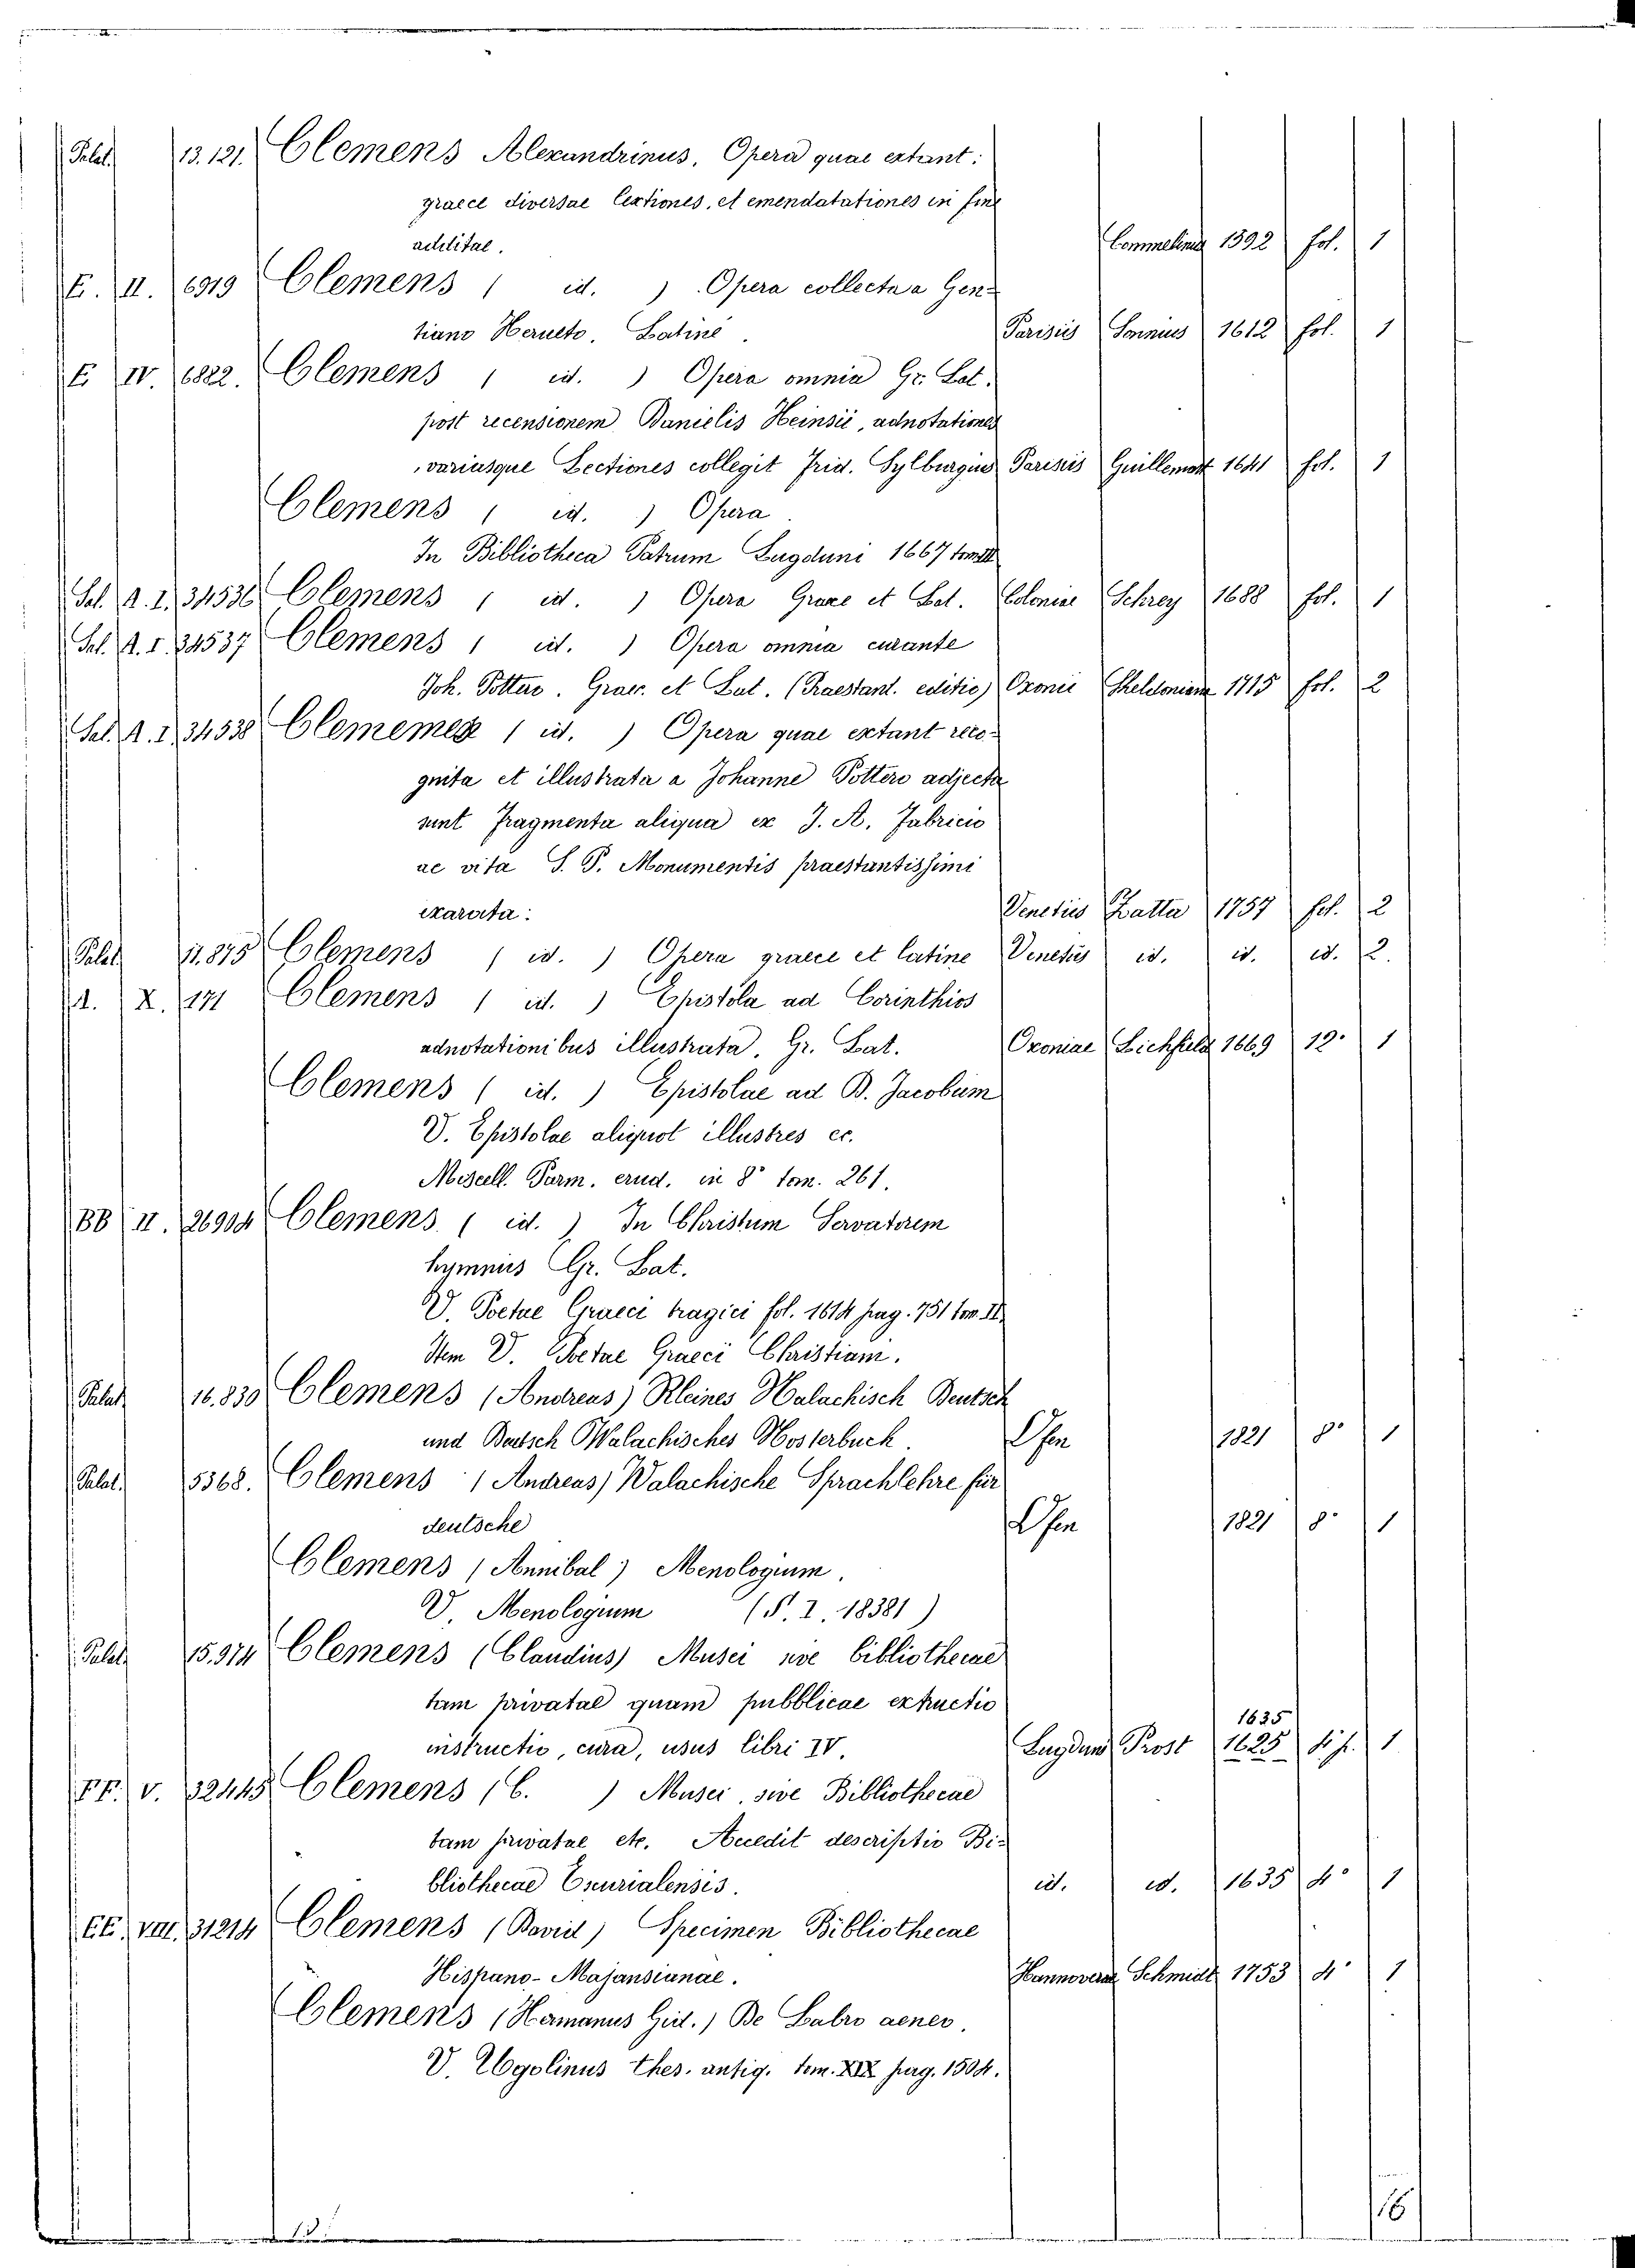 Palat. 13.121. Clemens Alexandrinus, Opera quae extant:
graece diversae lectiones, et emendatationes in fine
additae. Commelinus 1592 fol. 1
E. II. 6919 Clemens ( id. ) Opera collecta a Gen-
tiano Herveto. Latine. Parisiis Sonnius 1612 fol. 1
E IV. 6822. Clemens ( id. ) Opera omnia Gr. Lat.
post recensionem Danielis Heinsii, adnotationes
variasque Lectiones collegit Frid. Sylburgius Parisiis Guillemot 1641 fol. 1
Clemens ( id. ) Opera.
In Bibliotheca Patrum Lugduni 1667 tom III
Sal. A. I. 34536 Clemens ( id. ) Opera Graece et Lat. Coloniae Schrey 1688 fol. 1
Sal. A. I. 34537 Clemens ( id. ) Opera omnia curante
Joh. Pottero. Graec. et Lat. (Praestant. editio) Oxonii Sheldoniana 1715 fol. 2
Sal. A. I. 34538 Clememes ( id. ) Opera quae extant reco-
gnita et illustrata a Johanne Pottero adjecta
sunt fragmenta aliqua ex J. A. Fabricio
ac vita S. P. Monumentis praestantissimi
exarata: Venetiis Zatta 1757 fol. 2
Palat. 11.875 Clemens ( id. ) Opera graece et latine Venetiis id. id. id. 2.
A. X. 171 Clemens ( id. ) Epistola ad Corinthios
adnotationibus illustrata, Gr. Lat. Oxoniae Lichfield 1669 12° 1
Clemens ( id. ) Epistolae ad B. Jacobum
V. Epistolae aliquot illustres ec.
Miscell. Parm. erud. in 8° tom. 261.
BB II. 26904 Clemens ( id. ) In Christum Servatorem
hymnus Gr. Lat.
V. Poetae Graeci tragici fol. 1614 pag. 751 tom. II.
Item V. Poetae Graeci Christiani.
Palat. 16.830 Clemens (Andreas) Kleines Walachisch Deutsch
und Deutsch Walachisches Wosterbuch. Ofen 1821 8° 1
Palat. 5368. Clemens (Andreas) Walachische Sprachlehre für
deutsche Ofen 1821 8° 1
Clemens (Annibal) Menologium.
V. Menologium (S. I. 18381)
Palat. 15.974 Clemens (Claudius) Musei sive bibliothecae
tam privatae quam pubblicae extructio
instructio, cura, usus libri IV. Lugduni Prost 1635 1625 1
FF. V. 32445 Clemens (C. ) Musei, sive Bibliothecae
tam privatae etc. Accedit descriptio Bi-
bliothecae Escurialensis. id. id. 1635 4° 1
EE. VIII. 31214 Clemens (David) Specimen Bibliothecae
Hispano-Majansianae. Hannoverae Schmidt 1753 4° 1
Clemens (Hermanus Geil.) De Labro aeneo.
V. Ugolinus thes. antiq. tom. XIX pag. 1504.
16